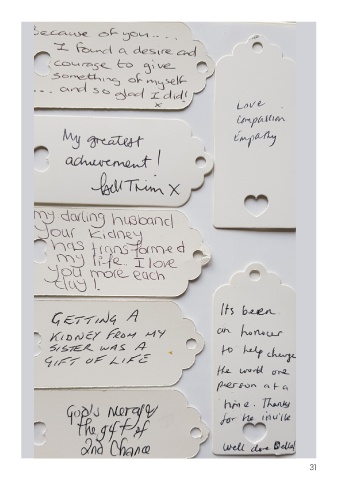 Because of you....
I found a desire and
courage to give
something of myself
... and so glad I did!
x
My greatest
achievement!
Trim X
my darling husband
your kidney
has transformed
my life. I love
you more each
day!
GETTING A
KIDNEY FROM MY
SISTER WAS A
GIFT OF LIFE
God's Mercy
the gift of
2nd Chance
Love
Compassion
Empathy
Its been
an honour
to help change
the world one
person at a
time. Thanks
for the invite
Well done
31